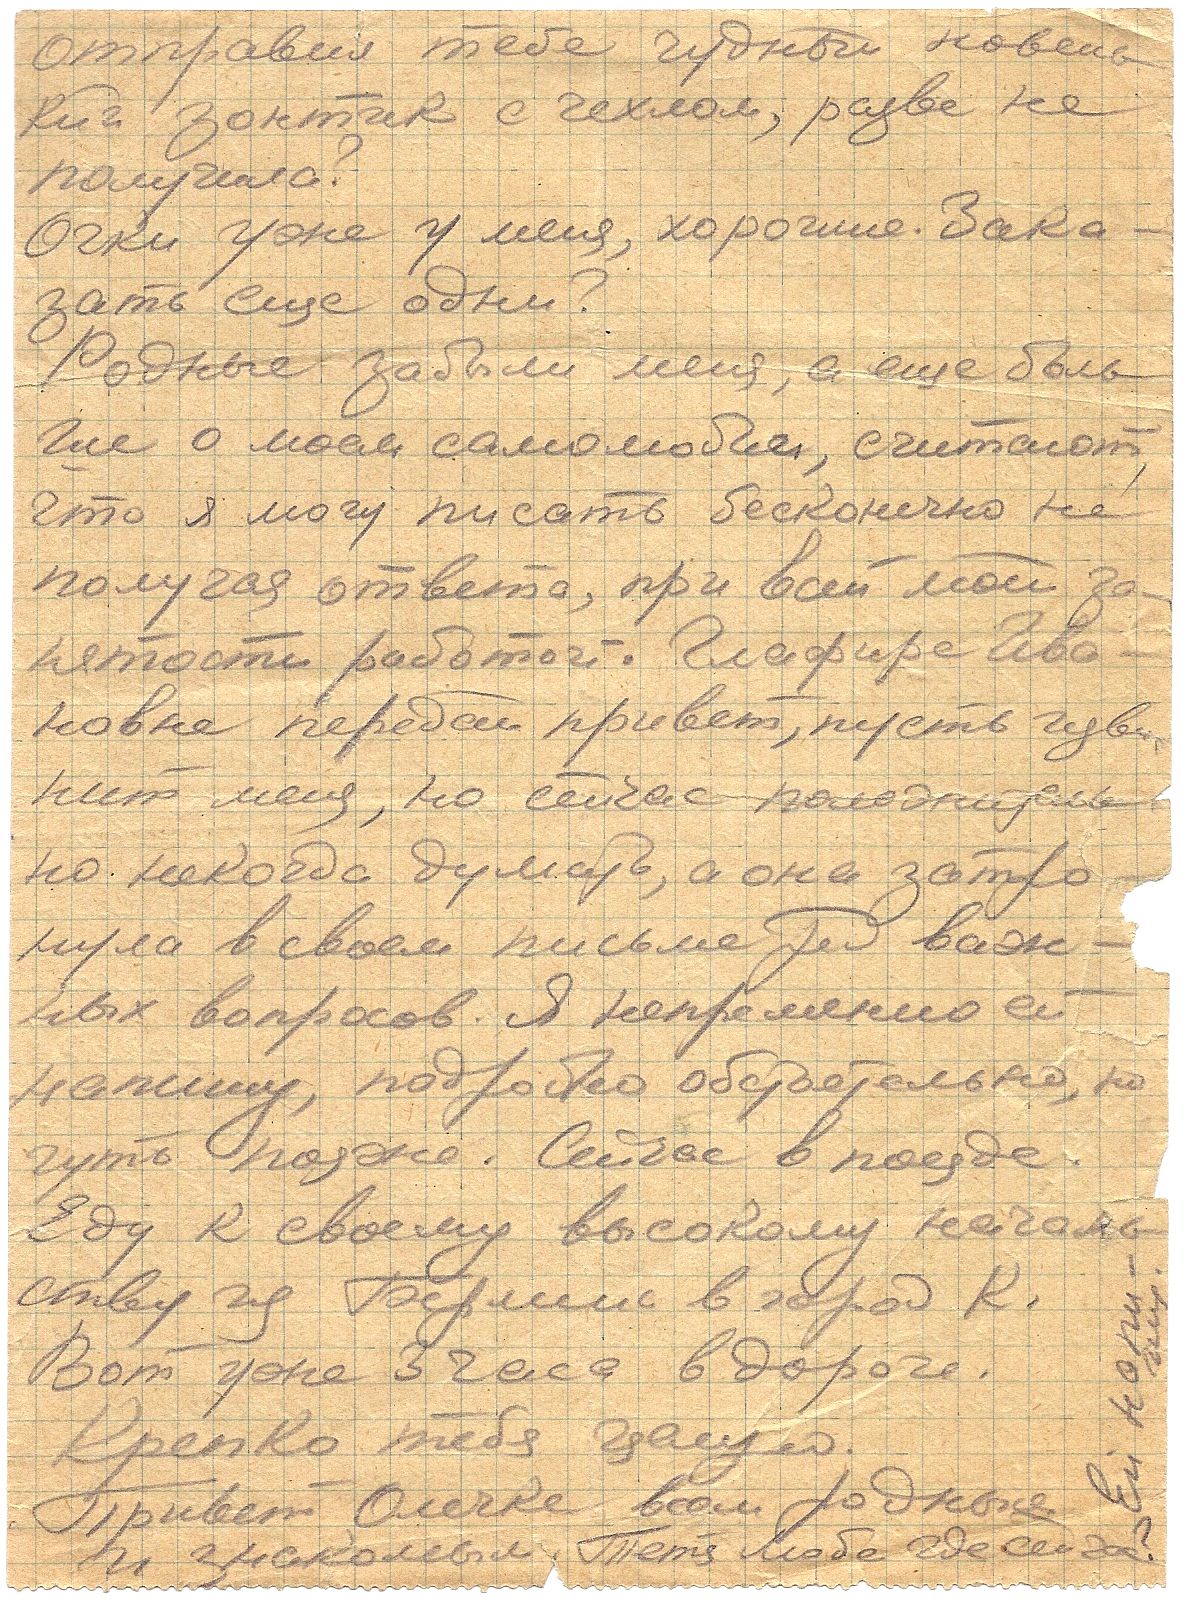 отправил тебе чудный новень
кий зонтик с чехлом, разве не
получила?
Очки уже у меня, хорошие. Зака-
зать еще одни?
Родные забыли меня, а еще боль
ше о моем самолюбии, считают,
что я могу писать бесконечно не
получая ответа, при всей моей за-
нятости работой. Глафире Ива-
новне передай привет, пусть изви-
нит меня, но сейчас положитель
но некогда думать, а она затро-
нула в своем письме ряд важ-
ных вопросов. Я непременно ей
напишу, подробно обстоятельно, но
чуть позже. Сейчас в поезде.
Еду к своему высокому началь
ству из Берлина в город К.
Вот уже 3 часа в дороге.
Крепко тебя целую.
Привет Олечке всем родным
и знакомым. Тетя Люба где сейчас?
Ей напи-
шу.